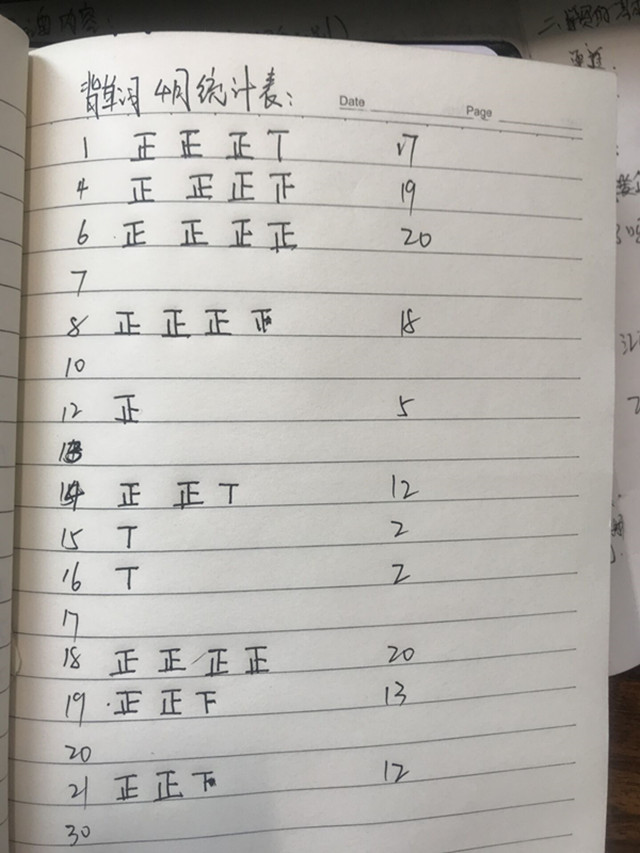 背单词 4月统计表：
Date Page
1 正 正 正 丅 17
4 正 正 正 正 19
6 正 正 正 正 20
7
8 正 正 正 正 18
10
12 正 5
13
14 正 正 丅 12
15 丅 2
16 丅 2
17
18 正 正 正 正 20
19 正 正 下 13
20
21 正 正 下 12
30